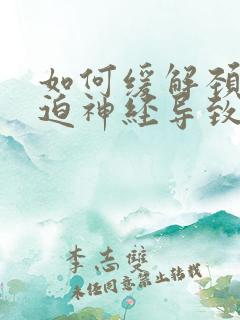 如何缓解颈
迫神经导致
李志双
未经同意禁止转载